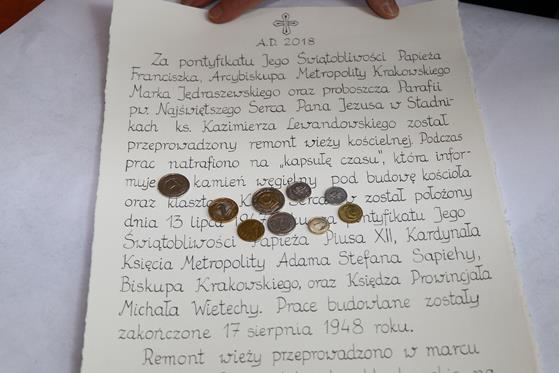 A.D. 2018
Za pontyfikatu Jego Świątobliwości Papieża
Franciszka, Arcybiskupa Metropolity Krakowskiego
Marka Jędraszewskiego oraz proboszcza Parafii
pw. Najświętszego Serca Pana Jezusa w Stadni-
kach ks. Kazimierza Lewandowskiego został
przeprowadzony remont wieży kościelnej. Podczas
prac natrafiono na „kapsułę czasu”, która infor-
muje kamień węgielny pod budowę kościoła
oraz został położony
dnia 13 lipca pontyfikatu Jego
Świątobliwości Papieża Piusa XII, Kardynała
Księcia Metropolity Adama Stefana Sapiehy,
Biskupa Krakowskiego, oraz Księdza Prowincjała
Michała Wietechy. Prace budowlane zostały
zakończone 17 sierpnia 1948 roku.
Remont wieży przeprowadzono w marcu